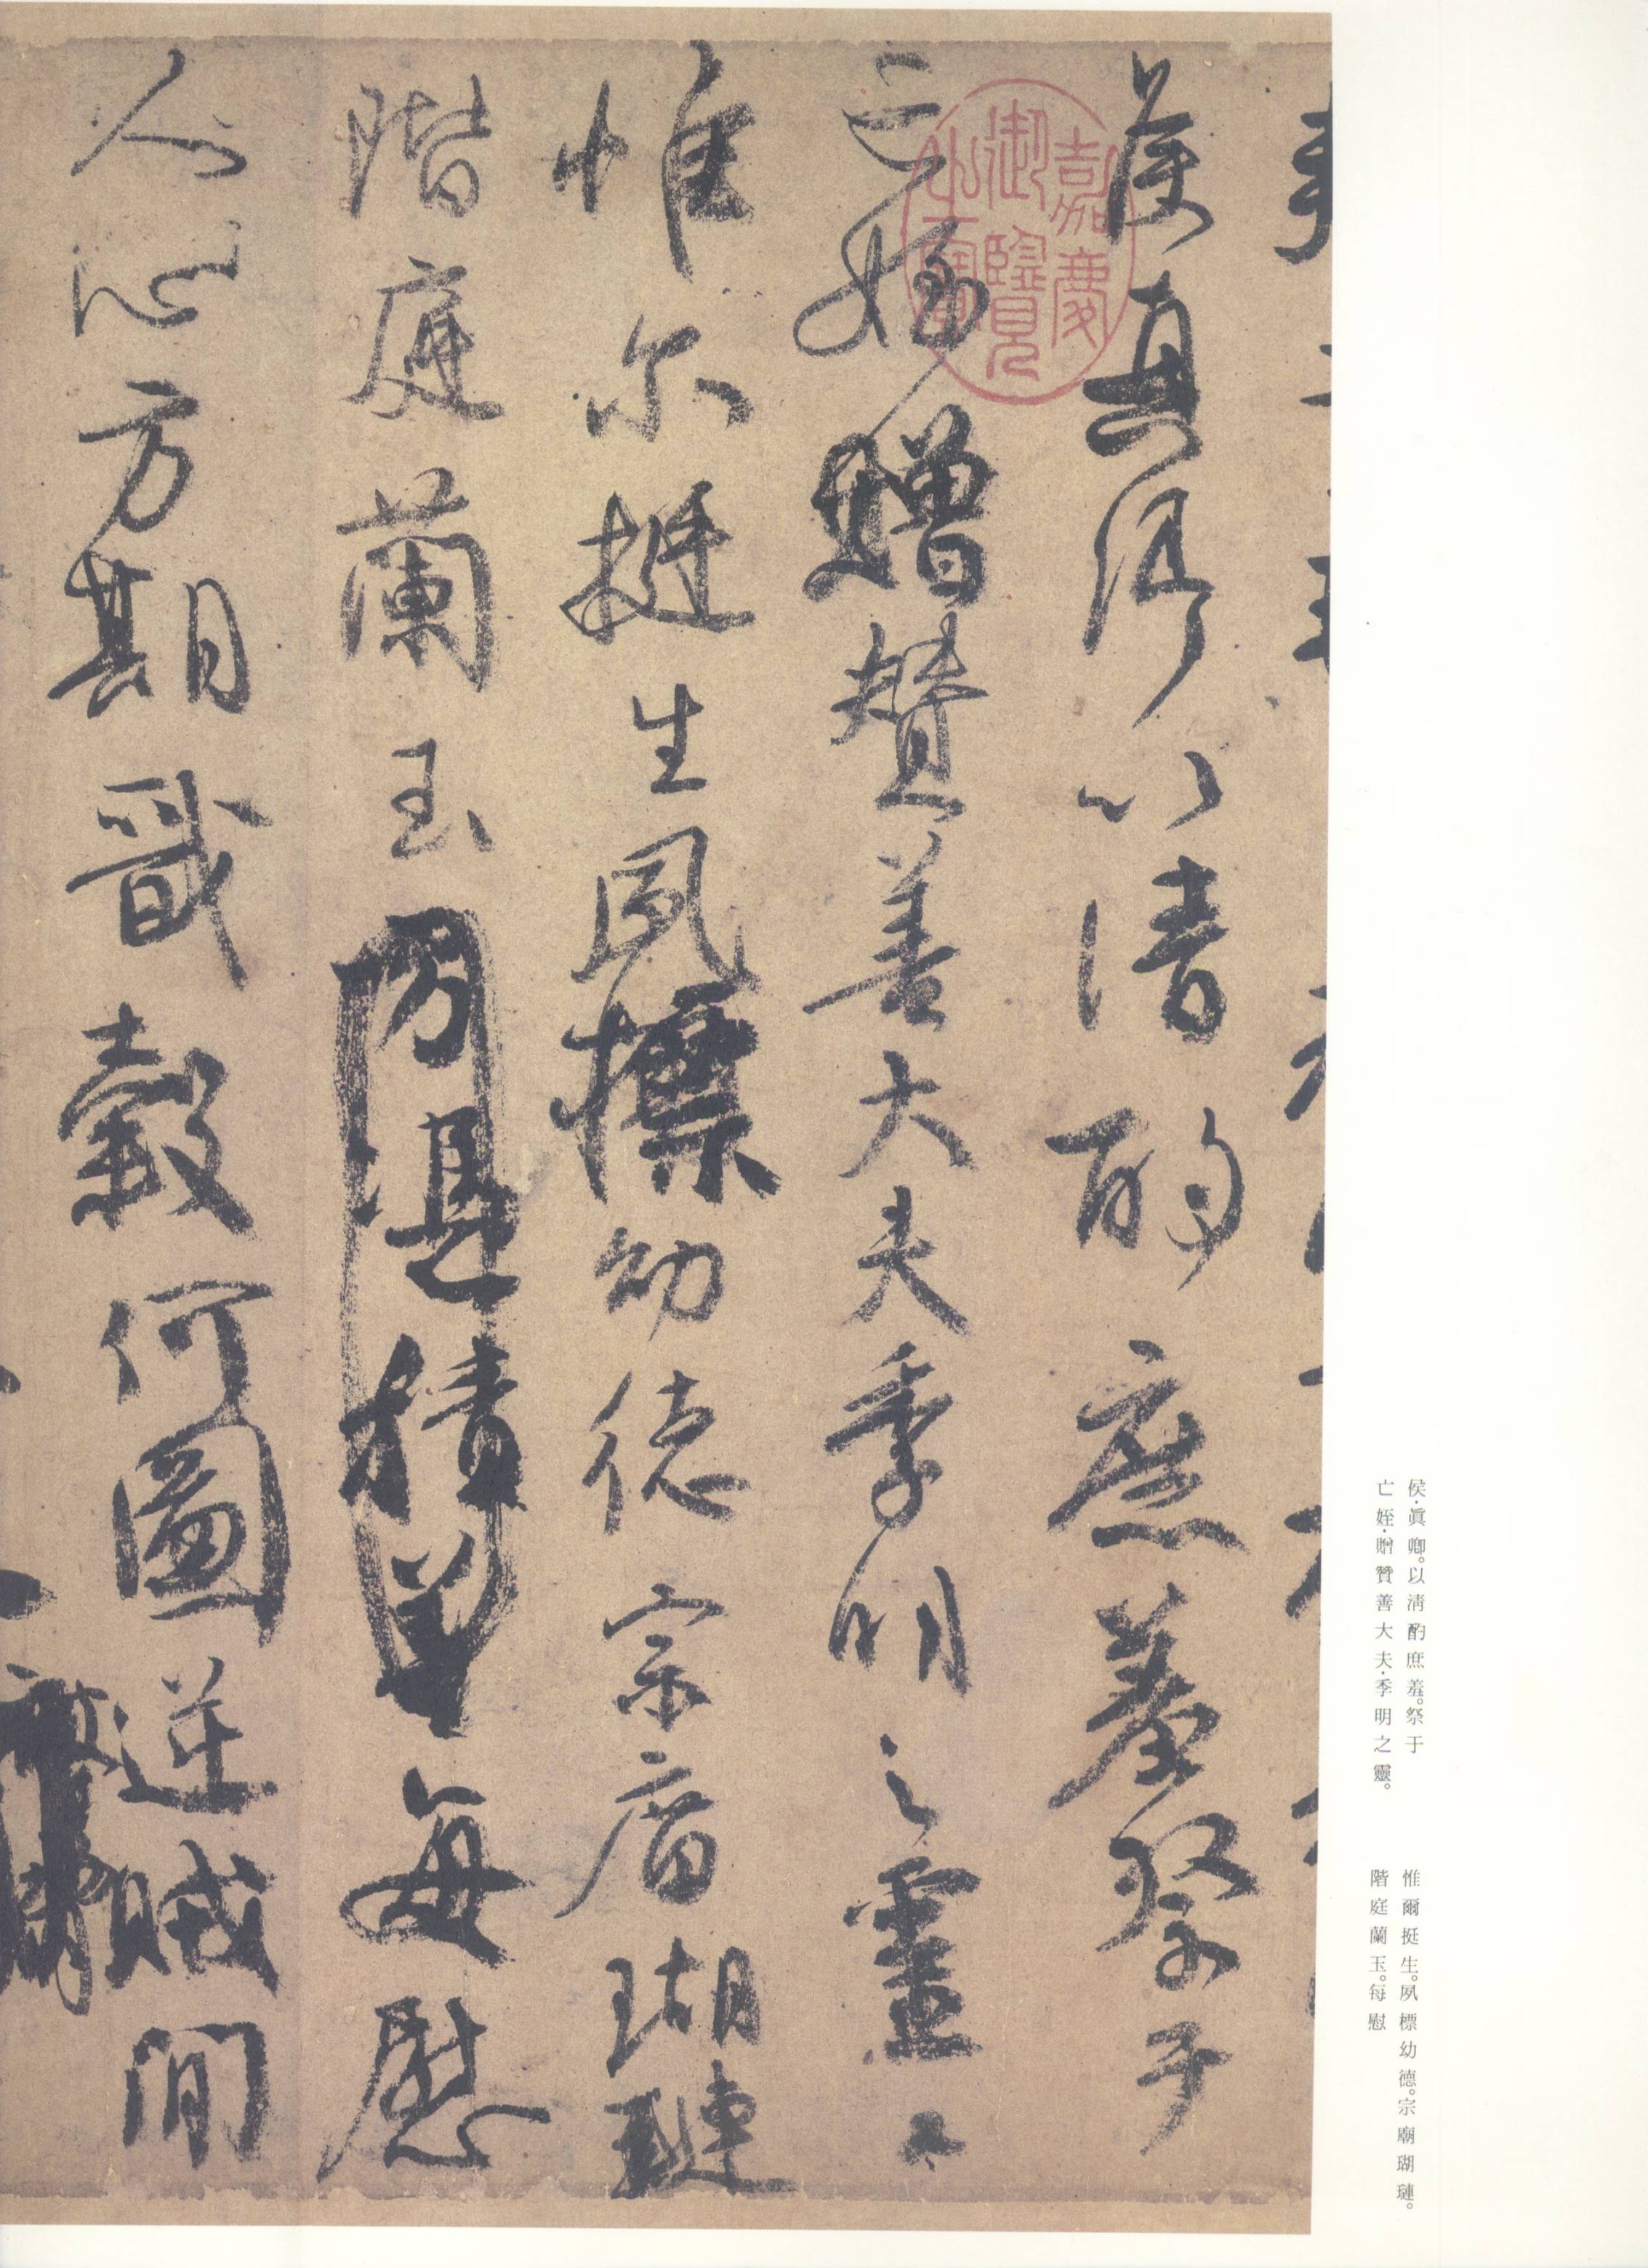 侯真卿以清酌庶羞祭于
亡姪贈贊善大夫季明之靈
惟尔挺生夙標幼德宗庿瑚璉
階庭蘭玉方憑積善每慰
人心方期戩穀何圖逆賊間
嘉慶
御覽
之寶
侯·眞卿。以淸酌庶羞。祭于
亡姪·贈贊善大夫·季明之靈。
惟爾挺生。夙標幼德。宗廟瑚璉。
階庭蘭玉。每慰